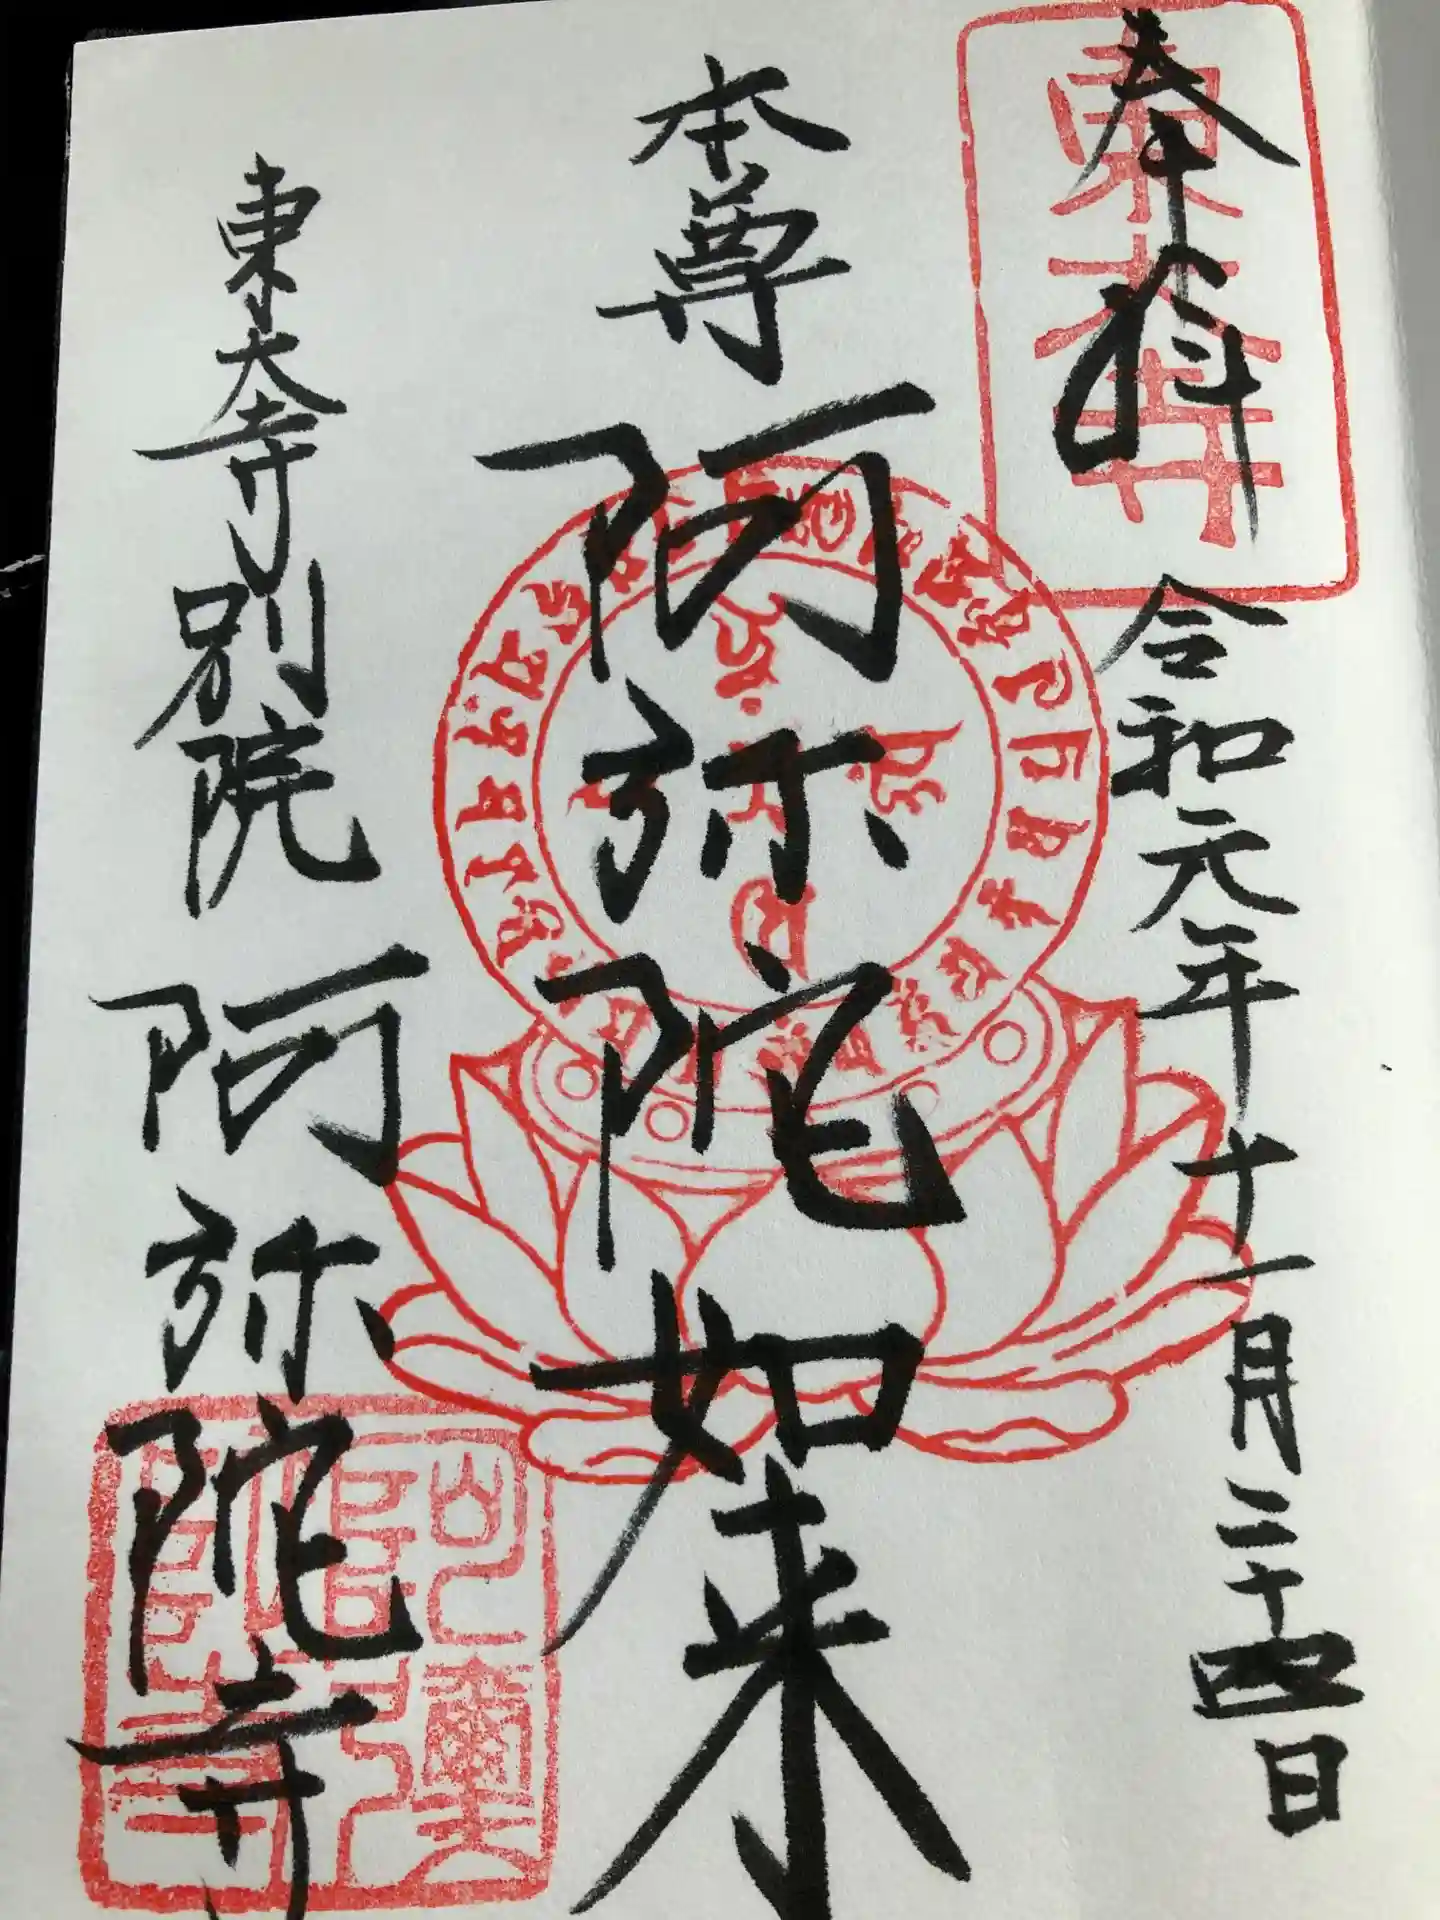 奉拝
令和元年十一月二十四日
本尊
阿弥陀如来
東大寺別院
阿弥陀寺
東大寺